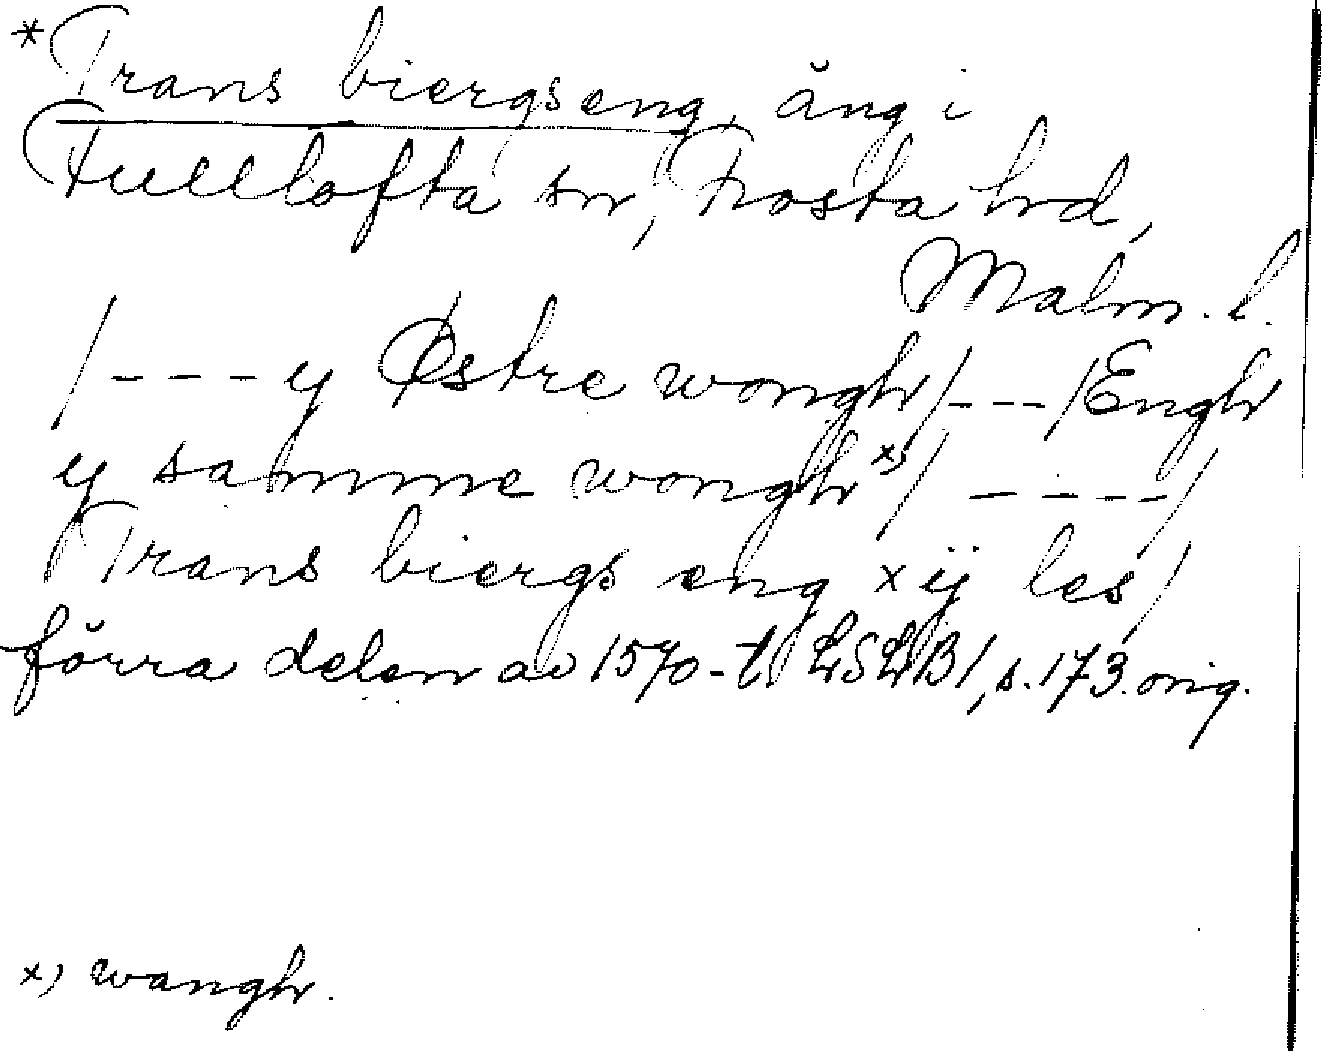 *Trans biergseng, äng i
Fulllöfta sn, Frosta hd,
Malm. l.
/---y Østre wongh/---/Engh
y samme wongh x)/ ----/
Trans biergs eng xij les/
förra delen av 1570-t. LSLB1, s. 173. orig.
x) wangh.